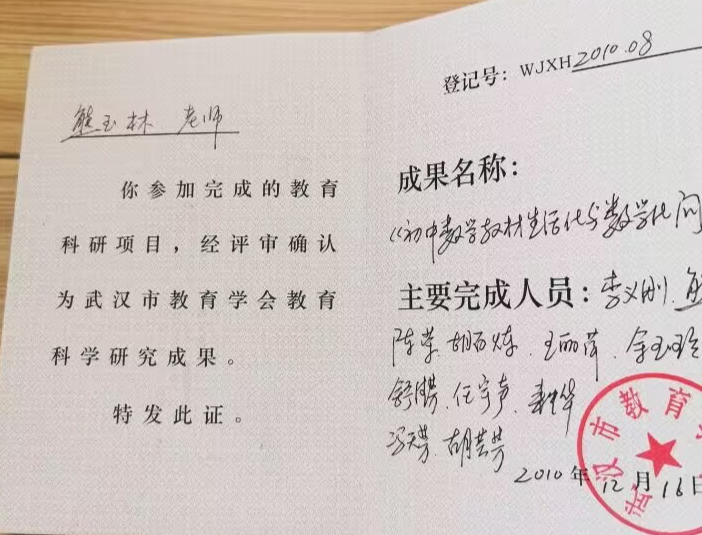 熊玉林 老师
你参加完成的教育
科研项目，经评审确认
为武汉市教育学会教育
科学研究成果。
特发此证。
登记号：WJXH2010.08
成果名称：
《初中数学教材生活化与数学化问
主要完成人员：李义刚、熊
陈荣 胡百炼、王丽萍、余玉珍
任宇声
胡芸芳
2010年12月16日
武汉市教育